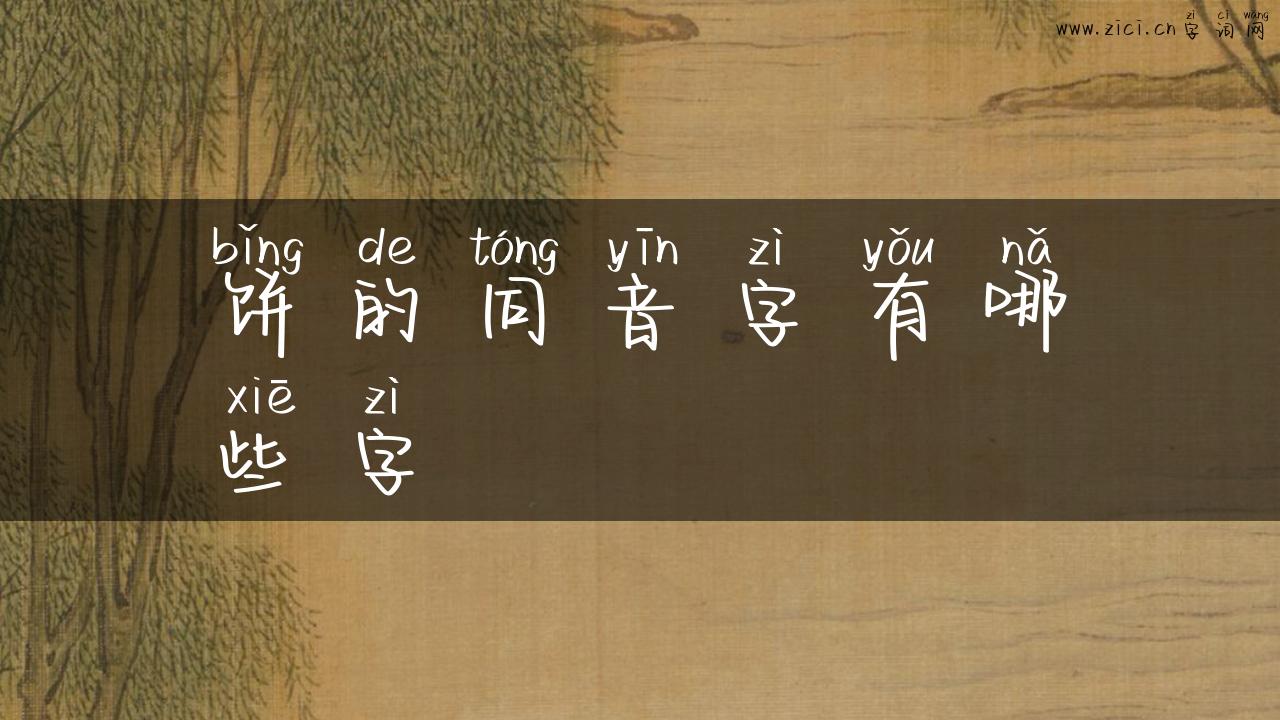 zì cí wǎng
www.zici.cn 字词网
bǐng de tóng yīn zì yǒu nǎ
饼的同音字有哪
xiē zì
些字